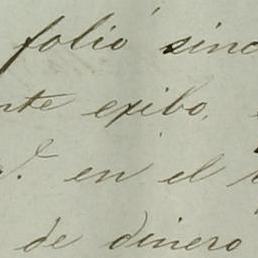 folio sinc
nte exibo,
en el
de dinero